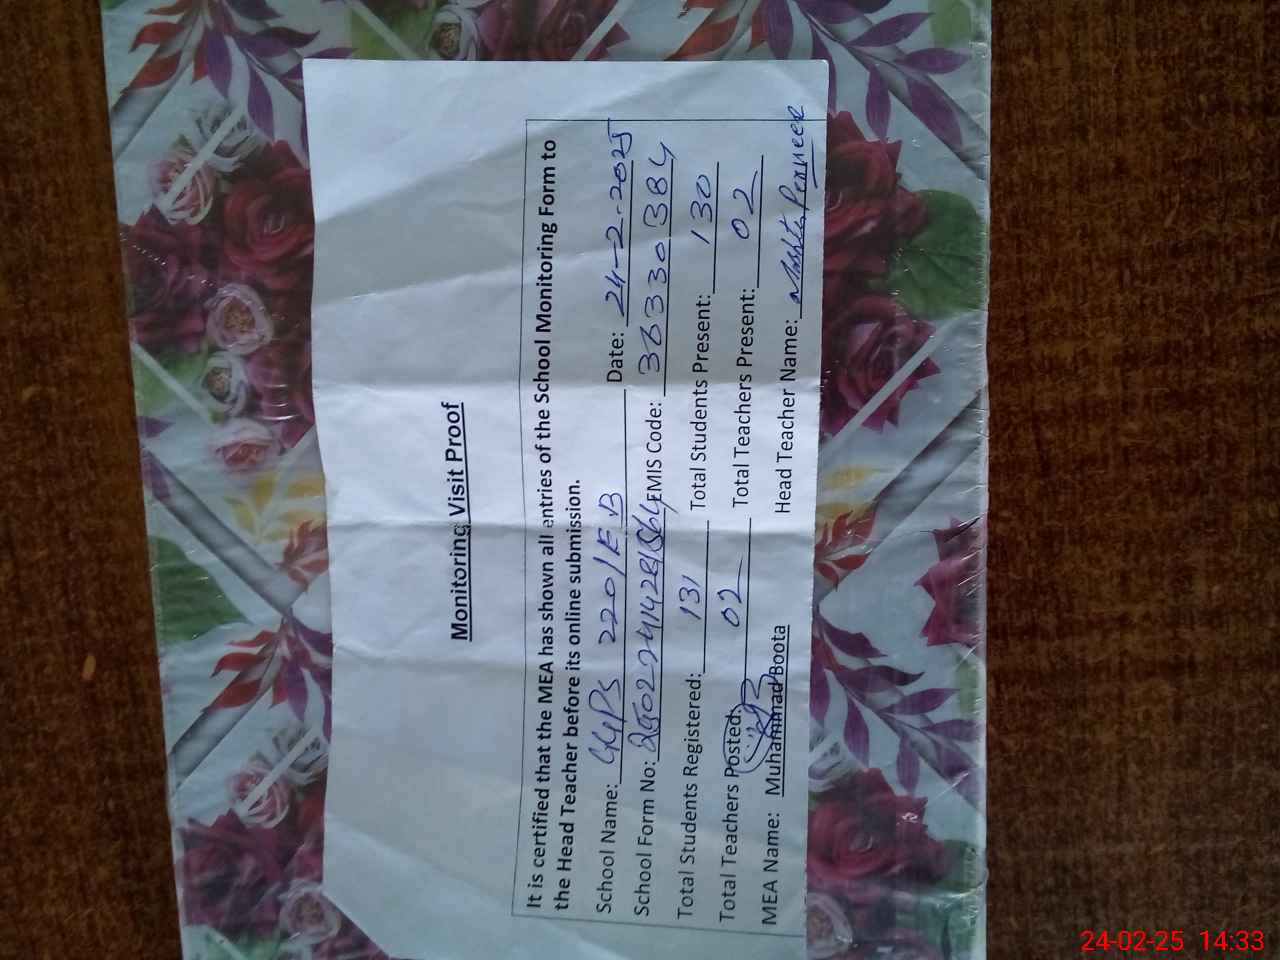 Monitoring Visit Proof
It is certified that the MEA has shown all entries of the School Monitoring Form to
the Head Teacher before its online submission.
School Name: GGPS 220/E B Date: 24-2-2025
School Form No: EMIS Code: 36330384
Total Students Registered: 131 Total Students Present: 130
Total Teachers Posted: 02 Total Teachers Present: 02
MEA Name: Muhammad Boota Head Teacher Name: Perveen
24-02-25 14:33